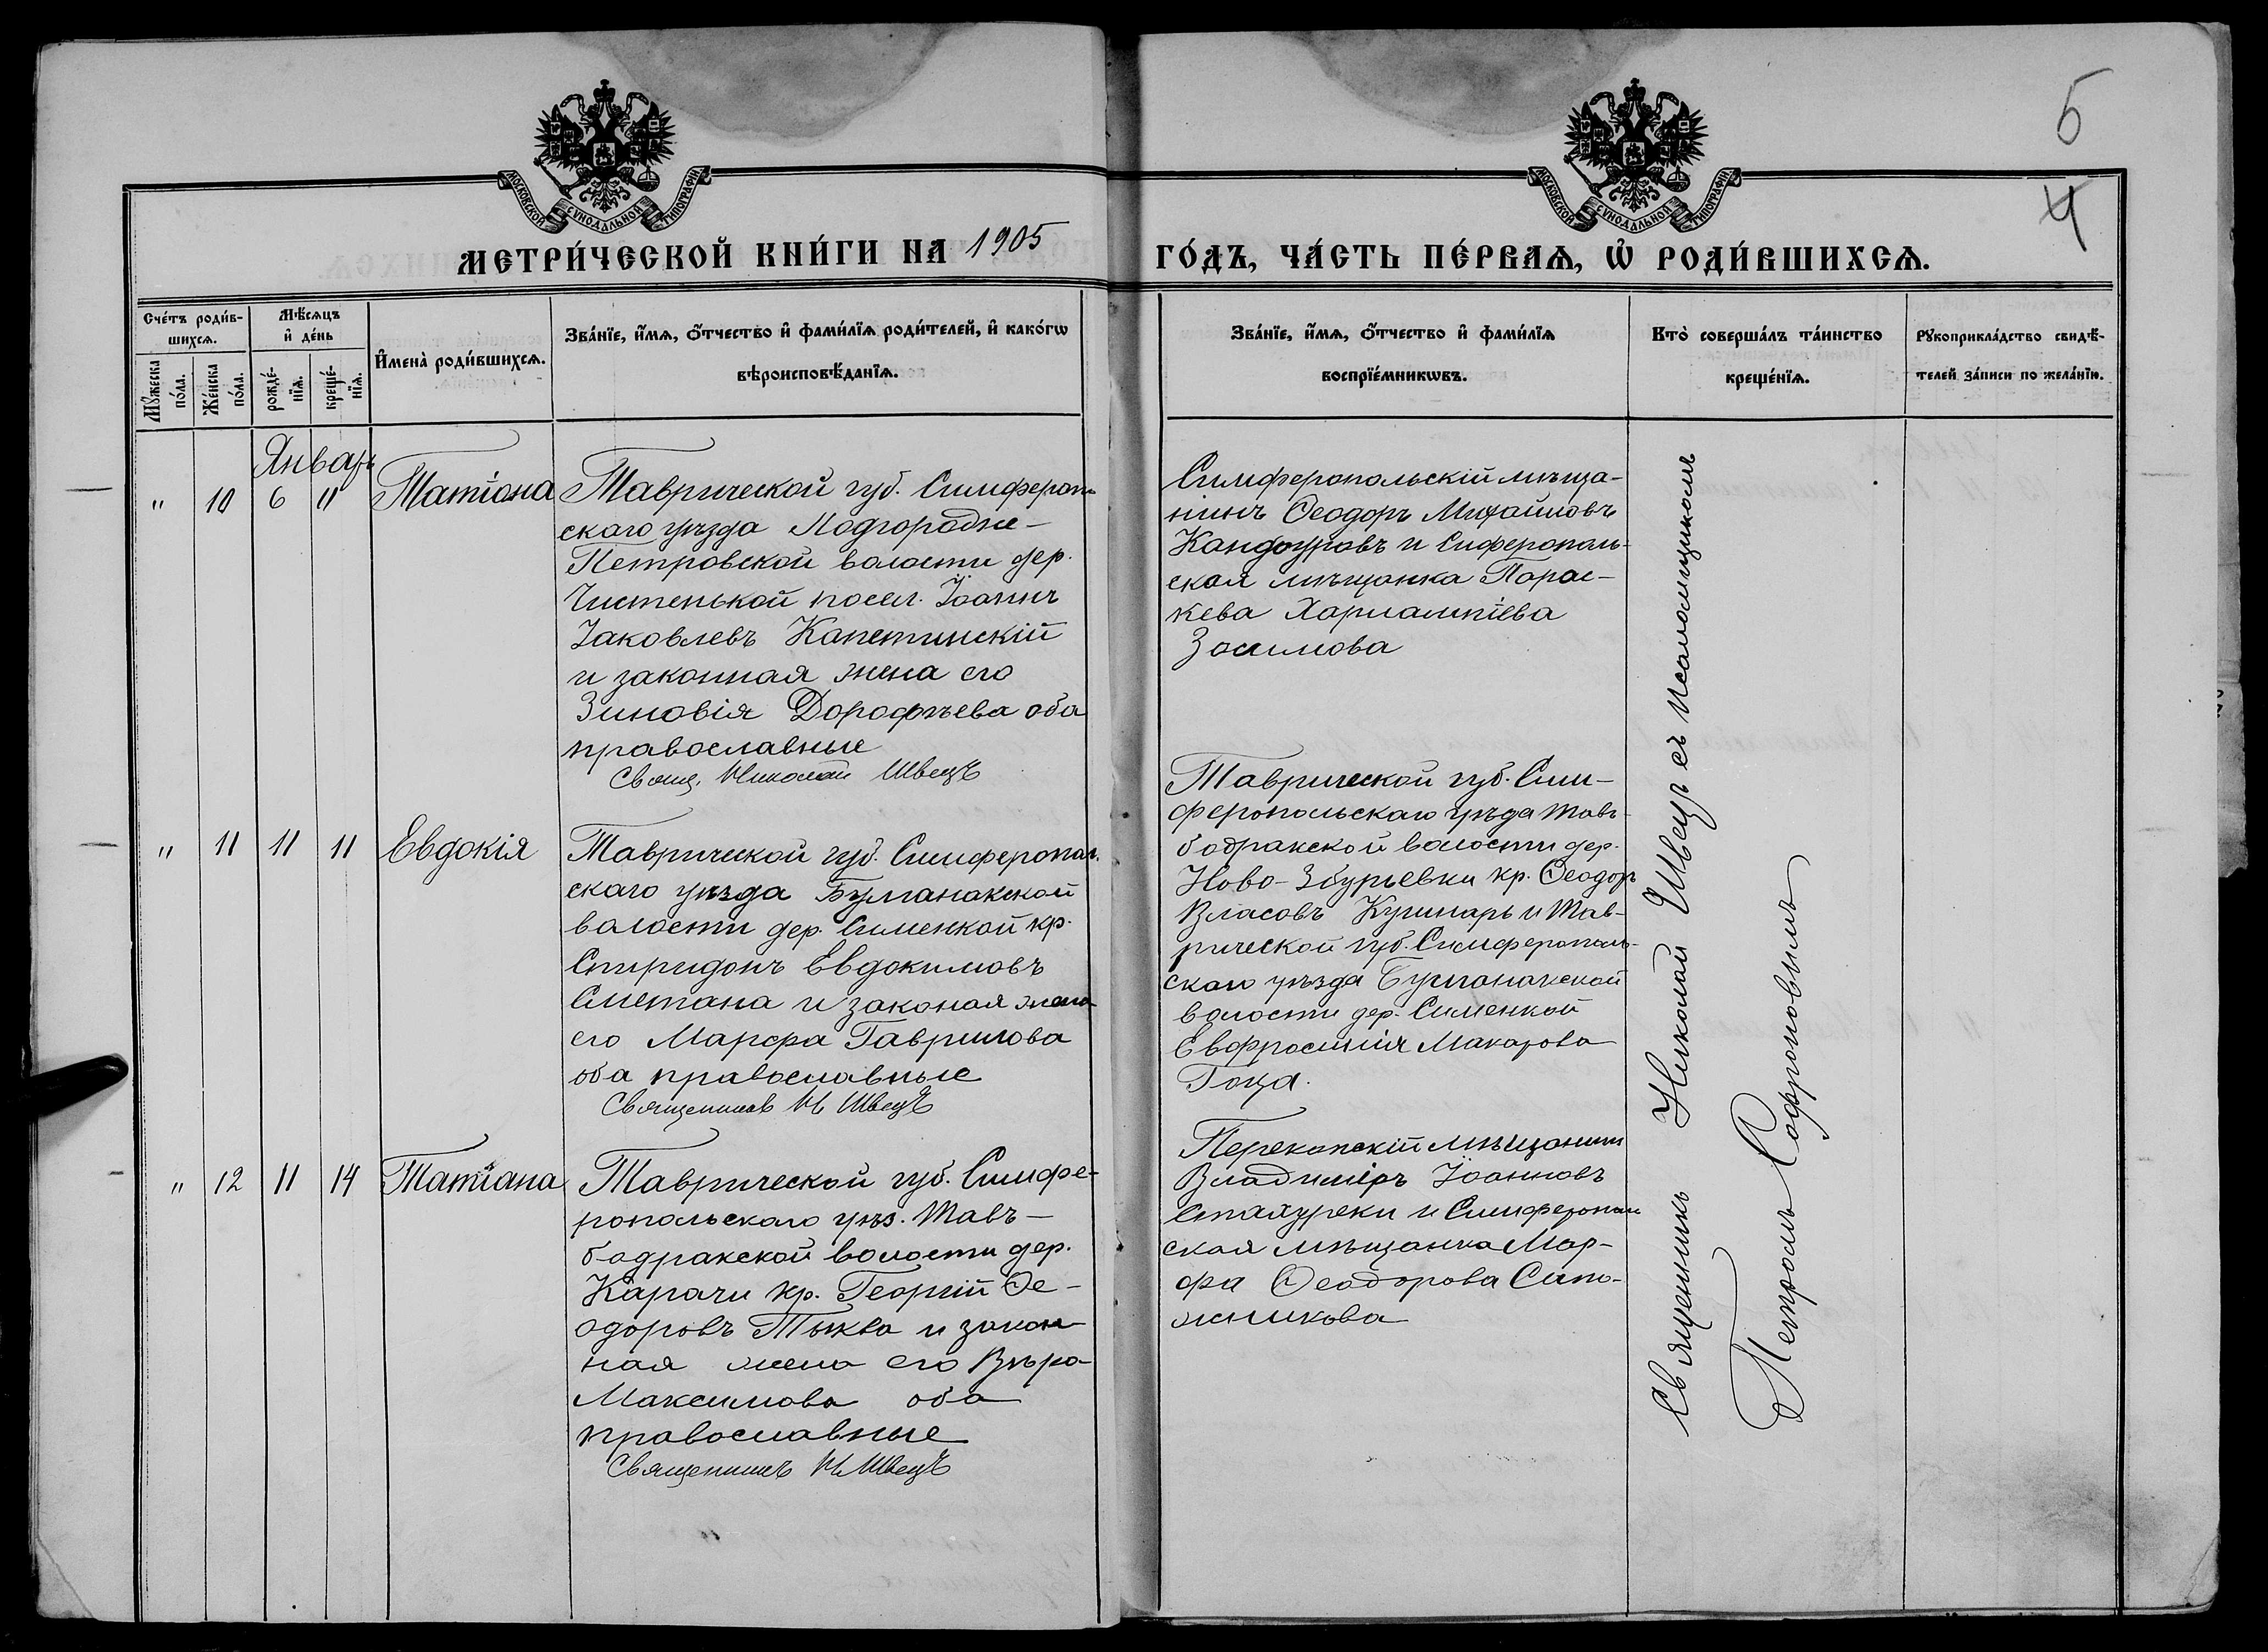 5
4
МОСКОВСКОЙ СѴНОДАЛЬНОЙ ТИПОГРАФІИ
МОСКОВСКОЙ СѴНОДАЛЬНОЙ ТИПОГРАФІИ
МЕТРИ́ЧЕСКОЙ КНИ́ГИ НА 1905
ГО́ДЪ, ЧА́СТЬ ПЕ́РВАѦ, Ѡ҆ РОДИ́ВШИХСѦ.
Сче́тъ роди́в-
шихсѧ.
Мѣ́сѧцъ
и҆ де́нь
Мꙋ́жеска
по́ла.
Же́нска
по́ла.
рожде́-
нїѧ.
креще́-
нїѧ.
И҆мена̀ роди́вшихсѧ.
Зва́нїе, и҆́мѧ, ѻ҆́тчество и҆ фами́лїѧ роди́телей, и҆ како́гѡ
вѣроисповѣ́данїѧ.
Зва́нїе, и҆́мѧ, ѻ҆́тчество и҆ фами́лїѧ
воспрїе́мникѡвъ.
Кто̀ соверша́лъ та́инство
креще́нїѧ.
Рꙋкоприкла́дство свидѣ́-
телей за́писи по жела́нїю.
Январь
" 10 6 11 Татіана
Таврической губ. Симфероп-
скаго уѣзда Подгородне-
Петровской волости дер.
Чистенькой посел. Іоаннъ
Іаковлевъ Капетинскій
и законная жена его
Зиновія Дорофѣева оба
православные
Свящ. Николай Швецъ
Симферопольскій мѣща-
нинъ Ѳеодоръ Михайловъ
Кандауровъ и Сиферополь-
ская мѣщанка Парас-
кева Харлампіева
Зосимова
" 11 11 11 Евдокія
Таврической губ. Симферопол.
скаго уѣзда Булганакской
волости дер. Сименкой кр.
Спиридонъ Евдокимовъ
Сметана и законая жена
его Марфа Гаврилова
оба православные
Священникъ Н Швецъ
Таврической губ. Сим-
феропольскаго уѣзда Тавъ-
бодракской волости дер.
Ново-Збурьевки кр. Ѳеодоръ
Власовъ Кушнарь и Тав-
рической губ. Симферополь-
скаго уѣзда Булганакской
волости дер. Сименкой
Евфросинія Макарова
Гоца.
" 12 11 14 Татіана
Таврической губ. Симфе-
ропольскаго уѣз. Тавъ-
бодракской волости дер.
Карачи кр. Георгій Ѳе-
одоровъ Тыква и закон-
ная жена его Вѣра
Максимова оба
православные
Священникъ Н Швецъ
Перекопскій мѣщанин
Владиміръ Іоанновъ
и Симферопол
ская мѣщанка Мар-
фа Ѳеодорова Сапо-
жникова
Священникъ Николай Швецъ съ псаломщикомъ
Петромъ Софроновымъ